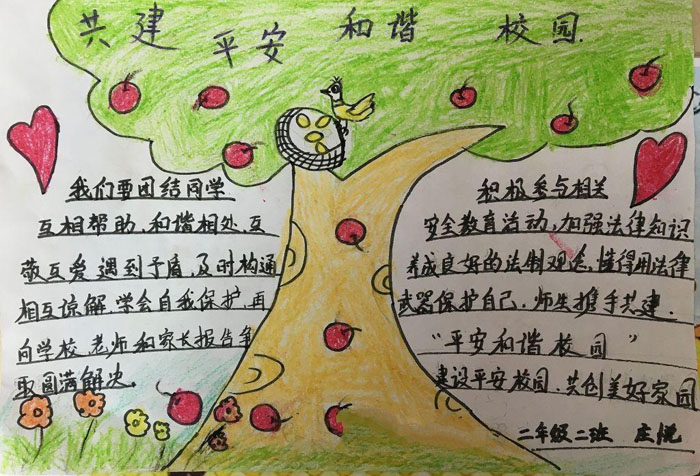 共建 平安 和谐 校园
我们要团结同学
互相帮助,和谐相处,互
敬互爱,遇到予盾,及时构通
相互谅解,学会自我保护,再
向学校 老师和家长报告争
取圆满解决。
积极参与相关
安全教育活动,加强法律知识
养成良好的法制观念,懂得用法律
武器保护自己.师生携手共建.
“平安和谐校园”
建设平安校园.共创美好家园
二年级二班 庄悦